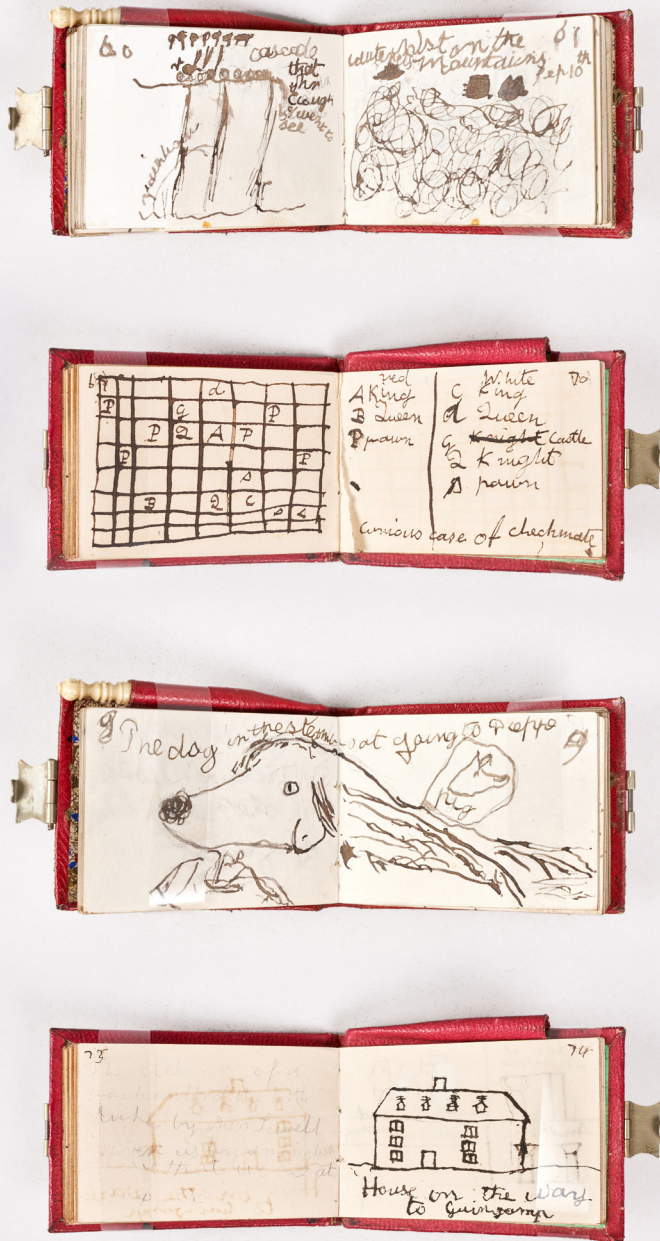 60
cascade
that
John
Clough
& I went to
see
61
whilst on the
mountains
Sep 10th
69
d
P
g
P
P
Q
A
P
P
P
s
B
Q
C
s
s
70
red
A King
B Queen
P pawn
White
C King
d Queen
g Knight Castle
Q Knight
s pawn
curious case of checkmate
8
9
The dog in the steam boat going to Dieppe
pig
73
74
House on the way
to Guingamp